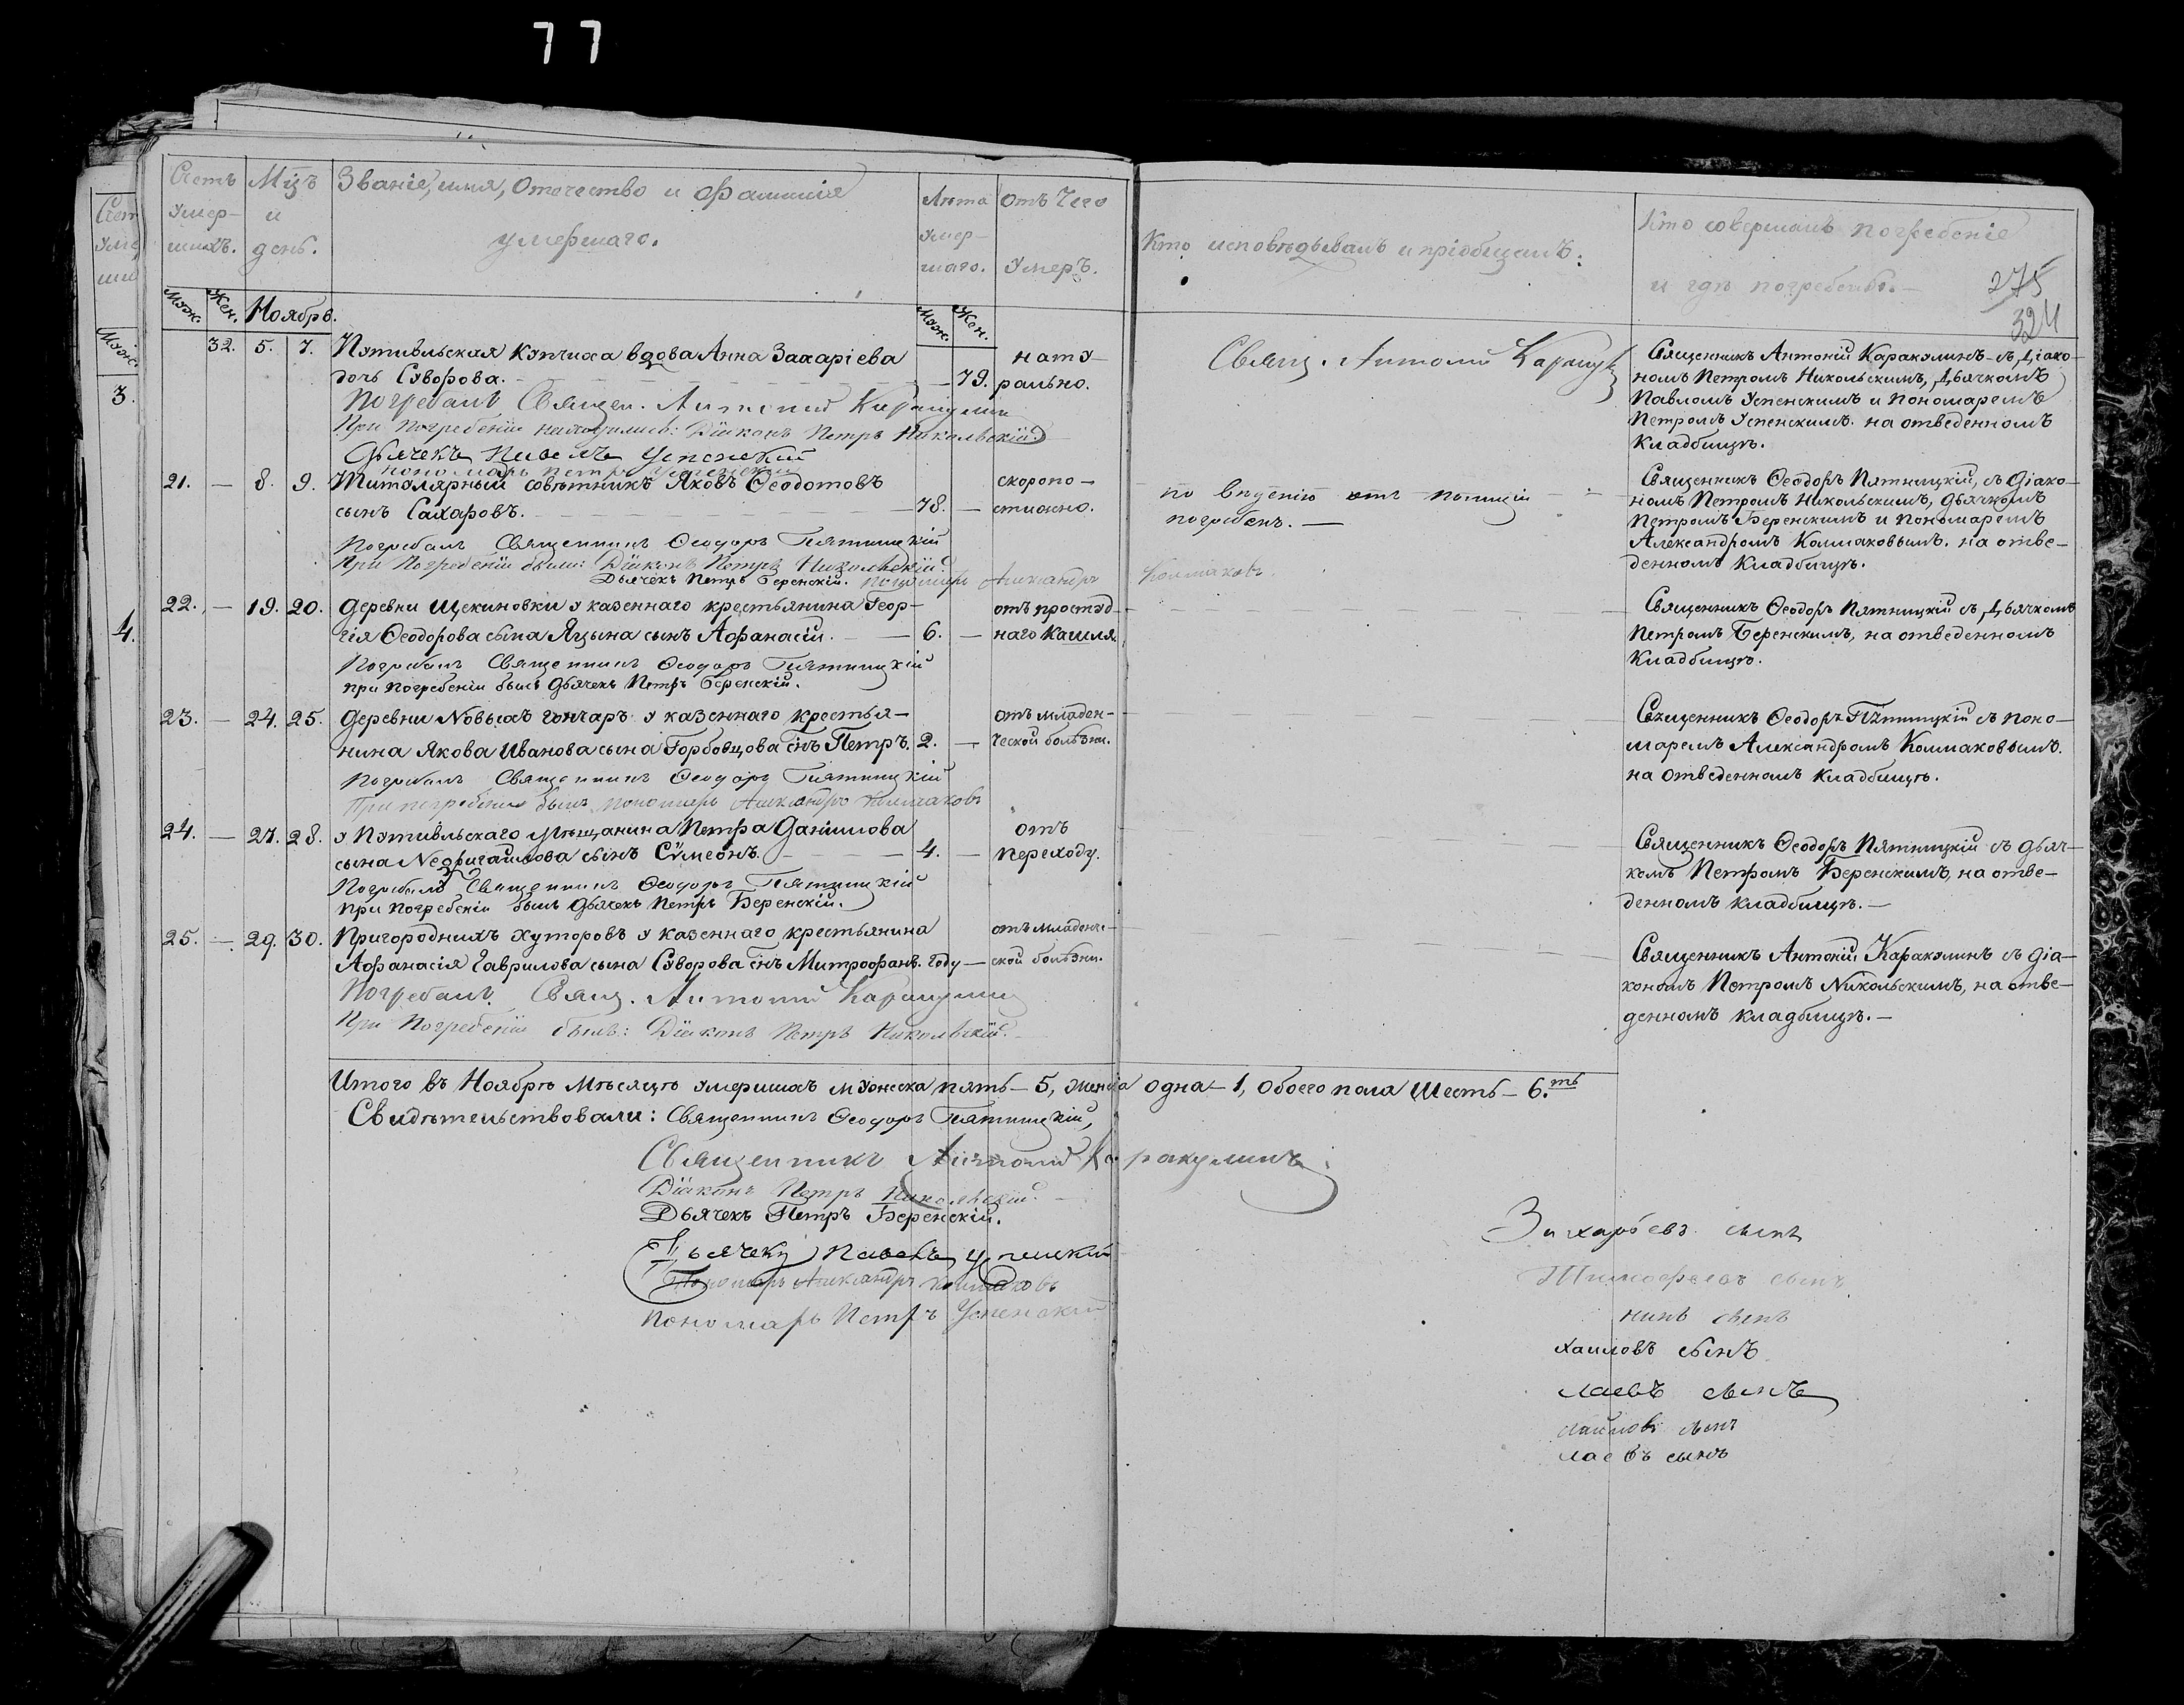 77
Счетъ умершихъ.
Мцъ и день.
Званіе, имя, Отечество и фамилія умершаго.
Лѣта умершаго.
Отъ Чего Умеръ.
Кто исповѣдывалъ и пріобщалъ.
Кто совершалъ погребеніе и гдѣ погребены.
275
324
Муж. Жен. Ноябрь. Муж. Жен.
Муж.
3.
4.
32. 5. 7. Путивльская купчиха вдова Анна Захаріева
дочь Суворова. — 79. натурально.
Погребалъ Священ. Антоній Каракулинъ
При Погребеніи находились: Діаконъ Петръ Никольскій
Дьячекъ Павелъ Успенскій
пономарь Петръ Успенскій
Свящ. Антоній Каракул
Священникъ Антоній Каракулинъ съ Діако-
номъ Петромъ Никольскимъ, Дьячкомъ
Павломъ Успенскимъ и Пономаремъ
Петромъ Успенскимъ. на отведенномъ
Кладбищѣ.
21. — 8. 9. Титулярный совѣтникъ Яковъ Ѳеодотовъ
сынъ Сахаровъ. — 78. — скоропостижно.
Погребалъ Священникъ Ѳеодоръ Пятницкій
При Погребеніи были: Діаконъ Петръ Никольскій.
Дьячекъ Петръ Беренскій. пономарь Александръ Колмаковъ.
по вѣденію отъ полиціи
погребенъ. —
Священникъ Ѳеодоръ Пятницкій, съ діако-
номъ Петромъ Никольскимъ, дьячкомъ
Петромъ Беренскимъ и Пономаремъ
Александромъ Колмаковымъ. на отве-
денномъ Кладбищѣ.
22. — 19. 20. Деревни Щекиновки у казеннаго крестьянина Геор-
гія Ѳеодорова сына Яцына сынъ Аѳанасій. — 6. — отъ простуднаго кашля.
Погребалъ Священникъ Ѳеодоръ Пятницкій
при погребеніи былъ дьячекъ Петръ Беренскій.
Священникъ Ѳеодоръ Пятницкій съ Дьячкомъ
Петромъ Беренскимъ, на отведенномъ
Кладбищѣ.
23. — 24. 25. Деревни Новыхъ Гончаръ у казеннаго крестья-
нина Якова Иванова сына Горбовцова снъ Петръ. 2. — отъ младенческой болѣзни.
Погребалъ Священникъ Ѳеодоръ Пятницкій
При погребеніи былъ пономарь Александръ Колмаковъ
Священникъ Ѳеодоръ Пятницкій съ поно-
маремъ Александромъ Колмаковымъ.
на отведенномъ кладбищѣ.
24. — 27. 28. у Путивльскаго мѣщанина Петра Даниилова
сына Недригайлова сынъ Сѵмеонъ. — 4. — отъ переходу.
Погребалъ Священникъ Ѳеодоръ Пятницкій
При погребеніи былъ дьячекъ Петръ Беренскій.
Священникъ Ѳеодоръ Пятницкій съ дьяч-
комъ Петромъ Беренскимъ, на отве-
денномъ кладбищѣ. —
25. — 29. 30. Пригороднихъ хуторовъ у казеннаго крестьянина
Аѳанасія Гаврилова сына Суворова снъ Митрофанъ. году — отъ младенческой болѣзни.
Погребалъ Свящ. Антоній Каракулинъ
При Погребеніи былъ: Діаконъ Петръ Никольскій.
Священникъ Антоній Каракулинъ съ діа-
кономъ Петромъ Никольскимъ, на отве-
денномъ кладбищѣ. —
Итого въ Ноябрѣ Мѣсяцѣ умершихъ мужеска пять — 5, женска одна — 1, Обоего пола Шесть — 6.ть
Свидѣтельствовали: Священникъ Ѳеодоръ Пятницкій,
Священникъ Антоній Каракулинъ
Діаконъ Петръ Никольскій.
Дьячекъ Петръ Беренскій.
Дьячекъ Павелъ Успенскій
Пономарь Александръ Колмаковъ
Пономарь Петръ Успенскій
Захарьевъ сынъ
Тимофеевъ сынъ
нинъ сынъ
хаиловъ сынъ
лаевъ сынъ
хайловъ сынъ
лаевъ сынъ